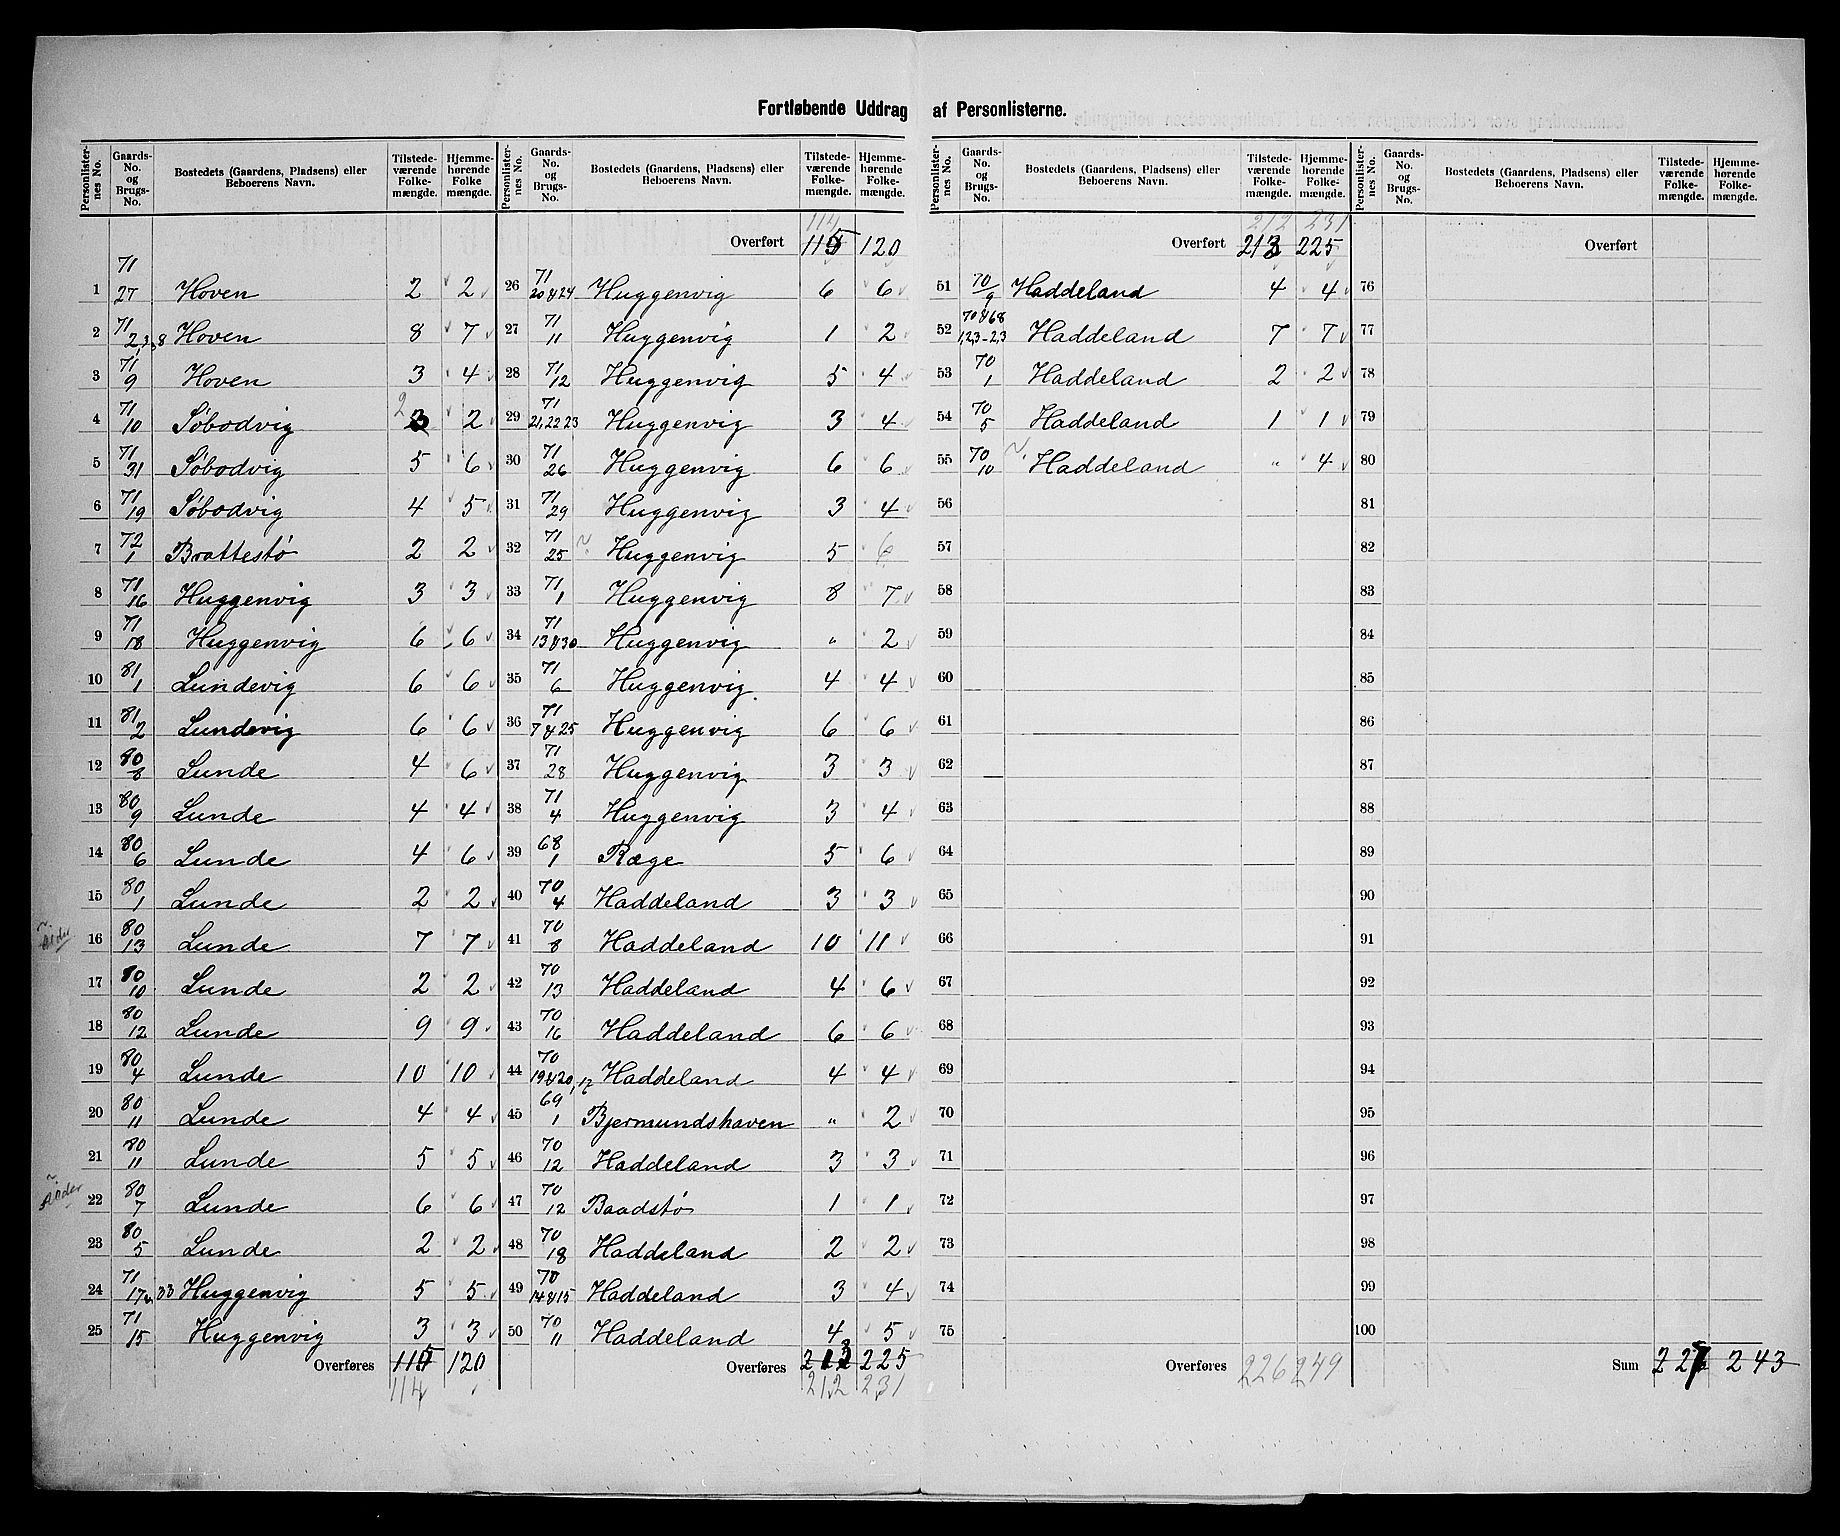 Fortløbende Uddrag af Personlisterne.
Personlisternes No. | Gaards-No. og Brugs-No. | Bostedets (Gaardens, Pladsens) eller Beboerens Navn. | Tilstedeværende Folkemængde. | Hjemmehørende Folkemængde.
1 | 71/27 | Hoven | 2 | 2
2 | 71/2,3,8 | Hoven | 8 | 7
3 | 71/9 | Hoven | 3 | 4
4 | 71/10 | Søbodvig | 3 2 | 2
5 | 71/31 | Søbodvig | 5 | 6
6 | 71/19 | Søbodvig | 4 | 5
7 | 72/1 | Brattestø | 2 | 2
8 | 71/16 | Huggenvig | 3 | 3
9 | 71/18 | Huggenvig | 6 | 6
10 | 81/1 | Lundevig | 6 | 6
11 | 81/2 | Lundevig | 6 | 6
12 | 80/8 | Lunde | 4 | 6
13 | 80/9 | Lunde | 4 | 4
14 | 80/6 | Lunde | 4 | 6
15 | 80/1 | Lunde | 2 | 2
16 | 80/13 | Lunde | 7 | 7
17 | 80/10 | Lunde | 2 | 2
18 | 80/12 | Lunde | 9 | 9
19 | 80/4 | Lunde | 10 | 10
20 | 80/11 | Lunde | 4 | 4
21 | 80/11 | Lunde | 5 | 5
22 | 80/7 | Lunde | 6 | 6
23 | 80/5 | Lunde | 2 | 2
24 | 71/17 & 33 | Huggenvig | 5 | 5
25 | 71/15 | Huggenvig | 3 | 3
Overføres | 115 | 120
114
Personlisternes No. | Gaards-No. og Brugs-No. | Bostedets (Gaardens, Pladsens) eller Beboerens Navn. | Tilstedeværende Folkemængde. | Hjemmehørende Folkemængde.
114
Overført | 115 | 120
26 | 71/20 & 24 | Huggenvig | 6 | 6
27 | 71/11 | Huggenvig | 1 | 2
28 | 71/12 | Huggenvig | 5 | 4
29 | 71/21,22 23 | Huggenvig | 3 | 4
30 | 71/26 | Huggenvig | 6 | 6
31 | 71/29 | Huggenvig | 3 | 4
32 | 71/25 | Huggenvig | 5 | 6
33 | 71/1 | Huggenvig | 8 | 7
34 | 71/13 & 30 | Huggenvig | " | 2
35 | 71/6 | Huggenvig. | 4 | 4
36 | 71/7 & 25 | Huggenvig | 6 | 6
37 | 71/28 | Huggenvig | 3 | 3
38 | 71/4 | Huggenvig | 3 | 4
39 | 68/1 | Ræge | 5 | 6
40 | 70/4 | Haddeland | 3 | 3
41 | 70/8 | Haddeland | 10 | 11
42 | 70/13 | Haddeland | 4 | 6
43 | 70/16 | Haddeland | 6 | 6
44 | 70/19 & 20, 17 | Haddeland | 4 | 4
45 | 69/1 | Bjermundshaven | " | 2
46 | 70/12 | Haddeland | 3 | 3
47 | 70/12 | Baadstø | 1 | 1
48 | 70/18 | Haddeland | 2 | 2
49 | 70/14 & 15 | Haddeland | 3 | 4
50 | 70/11 | Haddeland | 4 | 5
Overføres | 213 | 225
212 | 231
Personlisternes No. | Gaards-No. og Brugs-No. | Bostedets (Gaardens, Pladsens) eller Beboerens Navn. | Tilstedeværende Folkemængde. | Hjemmehørende Folkemængde.
212 | 231
Overført | 213 | 225
51 | 70/9 | Haddeland | 4 | 4
52 | 70 & 68/1,2,3-2,3 | Haddeland | 7 | 7
53 | 70/1 | Haddeland | 2 | 2
54 | 70/5 | Haddeland | 1 | 1
55 | 70/10 | Haddeland | " | 4
56
57
58
59
60
61
62
63
64
65
66
67
68
69
70
71
72
73
74
75
Overføres | 226 | 249
Personlisternes No. | Gaards-No. og Brugs-No. | Bostedets (Gaardens, Pladsens) eller Beboerens Navn. | Tilstedeværende Folkemængde. | Hjemmehørende Folkemængde.
Overført
76
77
78
79
80
81
82
83
84
85
86
87
88
89
90
91
92
93
94
95
96
97
98
99
100
Sum | 227 | 243